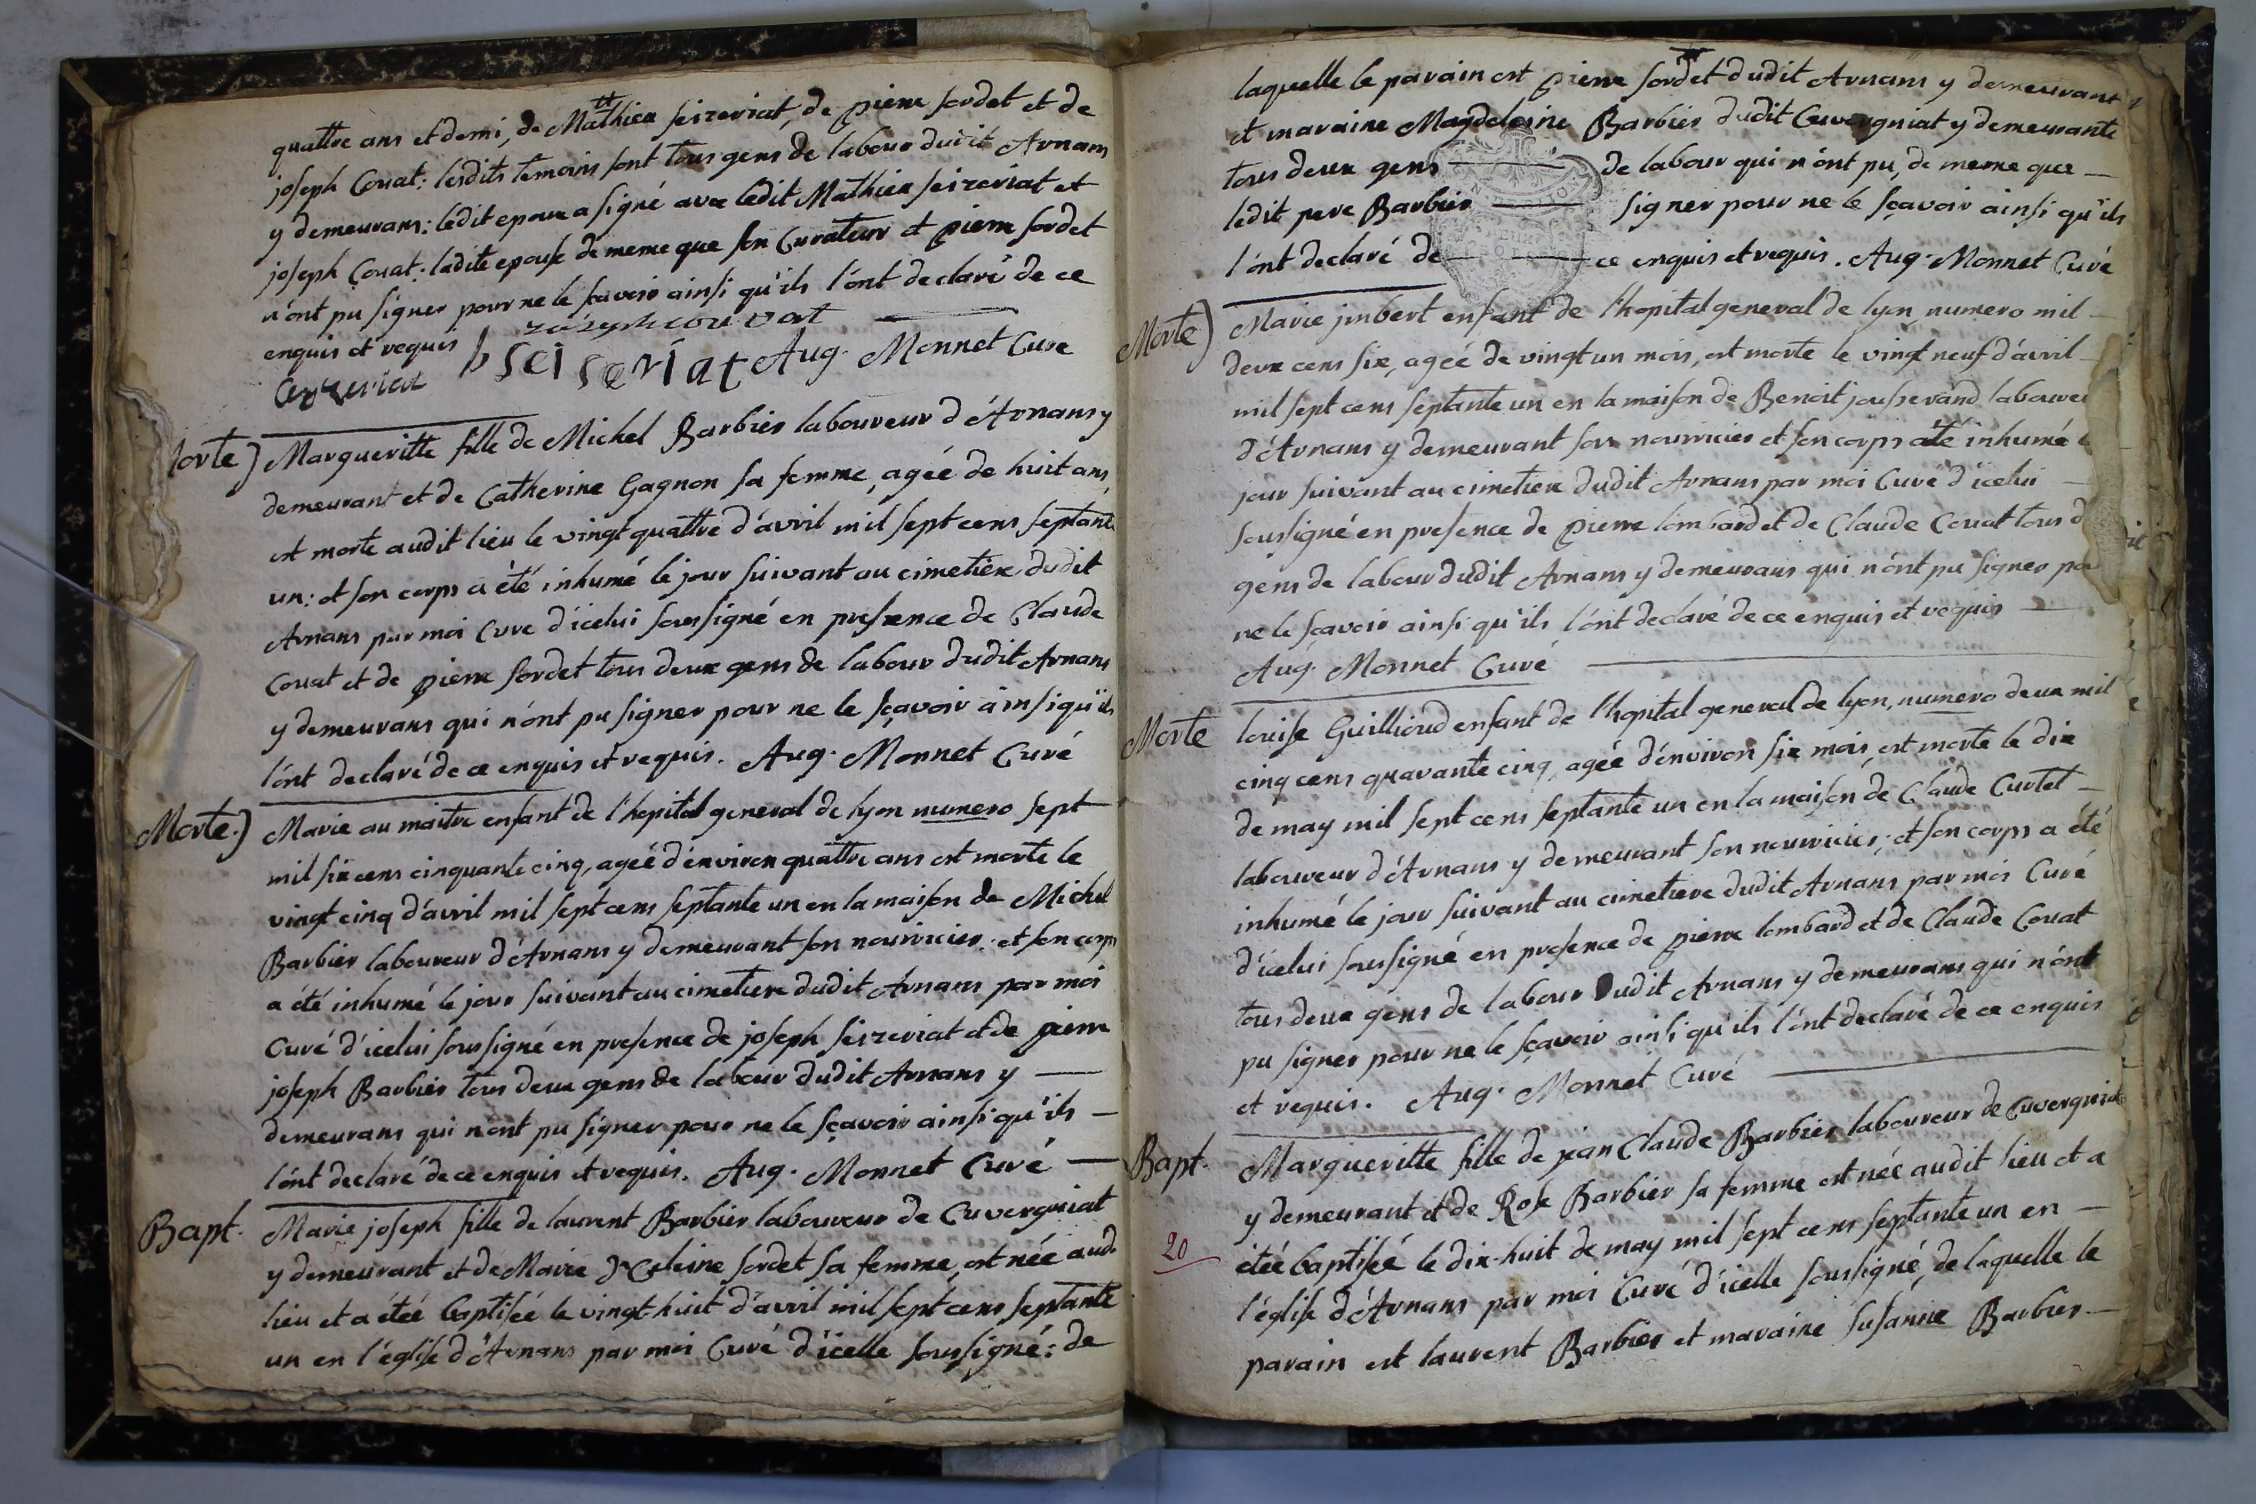 quattre ans et demi, de Mathieu seizeriat, de pierre sordet et de
joseph Couat: lesdits temoins sont tous gens de labour dudit Arnans
y demeurans: ledit epoux a signé avec ledit Mathieu seizeriat et
joseph Couat: ladite epouse de meme que son Curateur et pierre sordet
n'ont pu signer pour ne le sçavoir ainsi qu'ils l'ont declaré de ce
enquis et requis
Aug. Monnet Curé
Morte) Margueritte fille de Michel Barbier laboureur d'Arnans y
demeurant et de Catherine Gagnon sa femme, agée de huit ans,
est morte audit lieu le vingt quattre d'avril mil sept cens septante
un: et son corps a été inhumé le jour suivant au cimetiere dudit
Arnans par moi Curé d'icelui soussigné en presence de Claude
Couat et de pierre sordet tous deux gens de labour dudit Arnans
y demeurans qui n'ont pu signer pour ne le sçavoir ainsi qu'ils
l'ont declaré de ce enquis et requis. Aug. Monnet Curé
Morte.) Marie au maitre enfant de l'hopital general de lyon numero sept
mil six cens cinquante cinq, agée d'environ quattre ans est morte le
vingt cinq d'avril mil sept cens septante un en la maison de Michel
Barbier laboureur d'Arnans y demeurant son nourricier: et son corps
a été inhumé le jour suivant au cimetiere dudit Arnans par moi
Curé d'icelui soussigné en presence de joseph seizeriat et de pierre
joseph Barbier tous deux gens de labour dudit Arnans y
demeurans qui n'ont pu signer pour ne le sçavoir ainsi qu'ils
l'ont declaré de ce enquis et requis. Aug. Monnet Curé
Bapt. Marie joseph fille de laurent Barbier laboureur de Cuvergniat
y demeurant et de Marie sordet sa femme, est née aud.
lieu et a étéé baptisée le vingt-huit d'avril mil sept cens septante
un en l'église d'Arnans par moi Curé d'icelle soussigné: de
laquelle le parain est pierre sordet dudit Arnans y demeurant
et maraine Magdeleine Barbier dudit Cuvergniat y demeurante
tous deux gens de labour qui n'ont pu, de meme que
ledit pere Barbier signer pour ne le sçavoir ainsi qu'ils
l'ont declaré de ce enquis et requis. Aug. Monnet Curé
Morte) Marie jmbert enfant de l'hopital general de lyon numero mil
deux cens six, agée de vingt un mois, est morte le vingt neuf d'avril
mil sept cens septante un en la maison de Benoit jousserand laboureu
d'Arnans y demeurant son nourricier et son corps a été inhumé
jour suivant au cimetiere dudit Arnans par moi Curé d'icelui
soussigné en presence de pierre lombard et de Claude Couat tous d
gens de labour dudit Arnans y demeurans qui n'ont pu signer po
ne le sçavoir ainsi qu'ils l'ont declaré de ce enquis et requis
Aug. Monnet Curé
Morte louise Guillioud enfant de l'hopital general de lyon, numero deux mil
cinq cens quarante cinq, agée d'environ six mois, est morte le dix
de may mil sept cens septante un en la maison de Claude Curtet
laboureur d'Arnans y demeurant son nourricier; et son corps a été
inhumé le jour suivant au cimetiere dudit Arnans par moi Curé
d'icelui soussigné en presence de pierre lombard et de Claude Couat
tous deux gens de labour dudit Arnans y demeurans qui n'ont
pu signer pour ne le sçavoir ainsi qu'ils l'ont declaré de ce enquis
et requis. Aug. Monnet Curé
Bapt. Margueritte fille de jean Claude Barbier laboureur de Cuvergniat
y demeurant et de Rose Barbier sa femme est née audit lieu et a
étéé baptisée le dix-huit de may mil sept cens septante un en
20
l'église d'Arnans par moi Curé d'icelle soussigné, de laquelle le
parain est laurent Barbier et maraine susanne Barbier